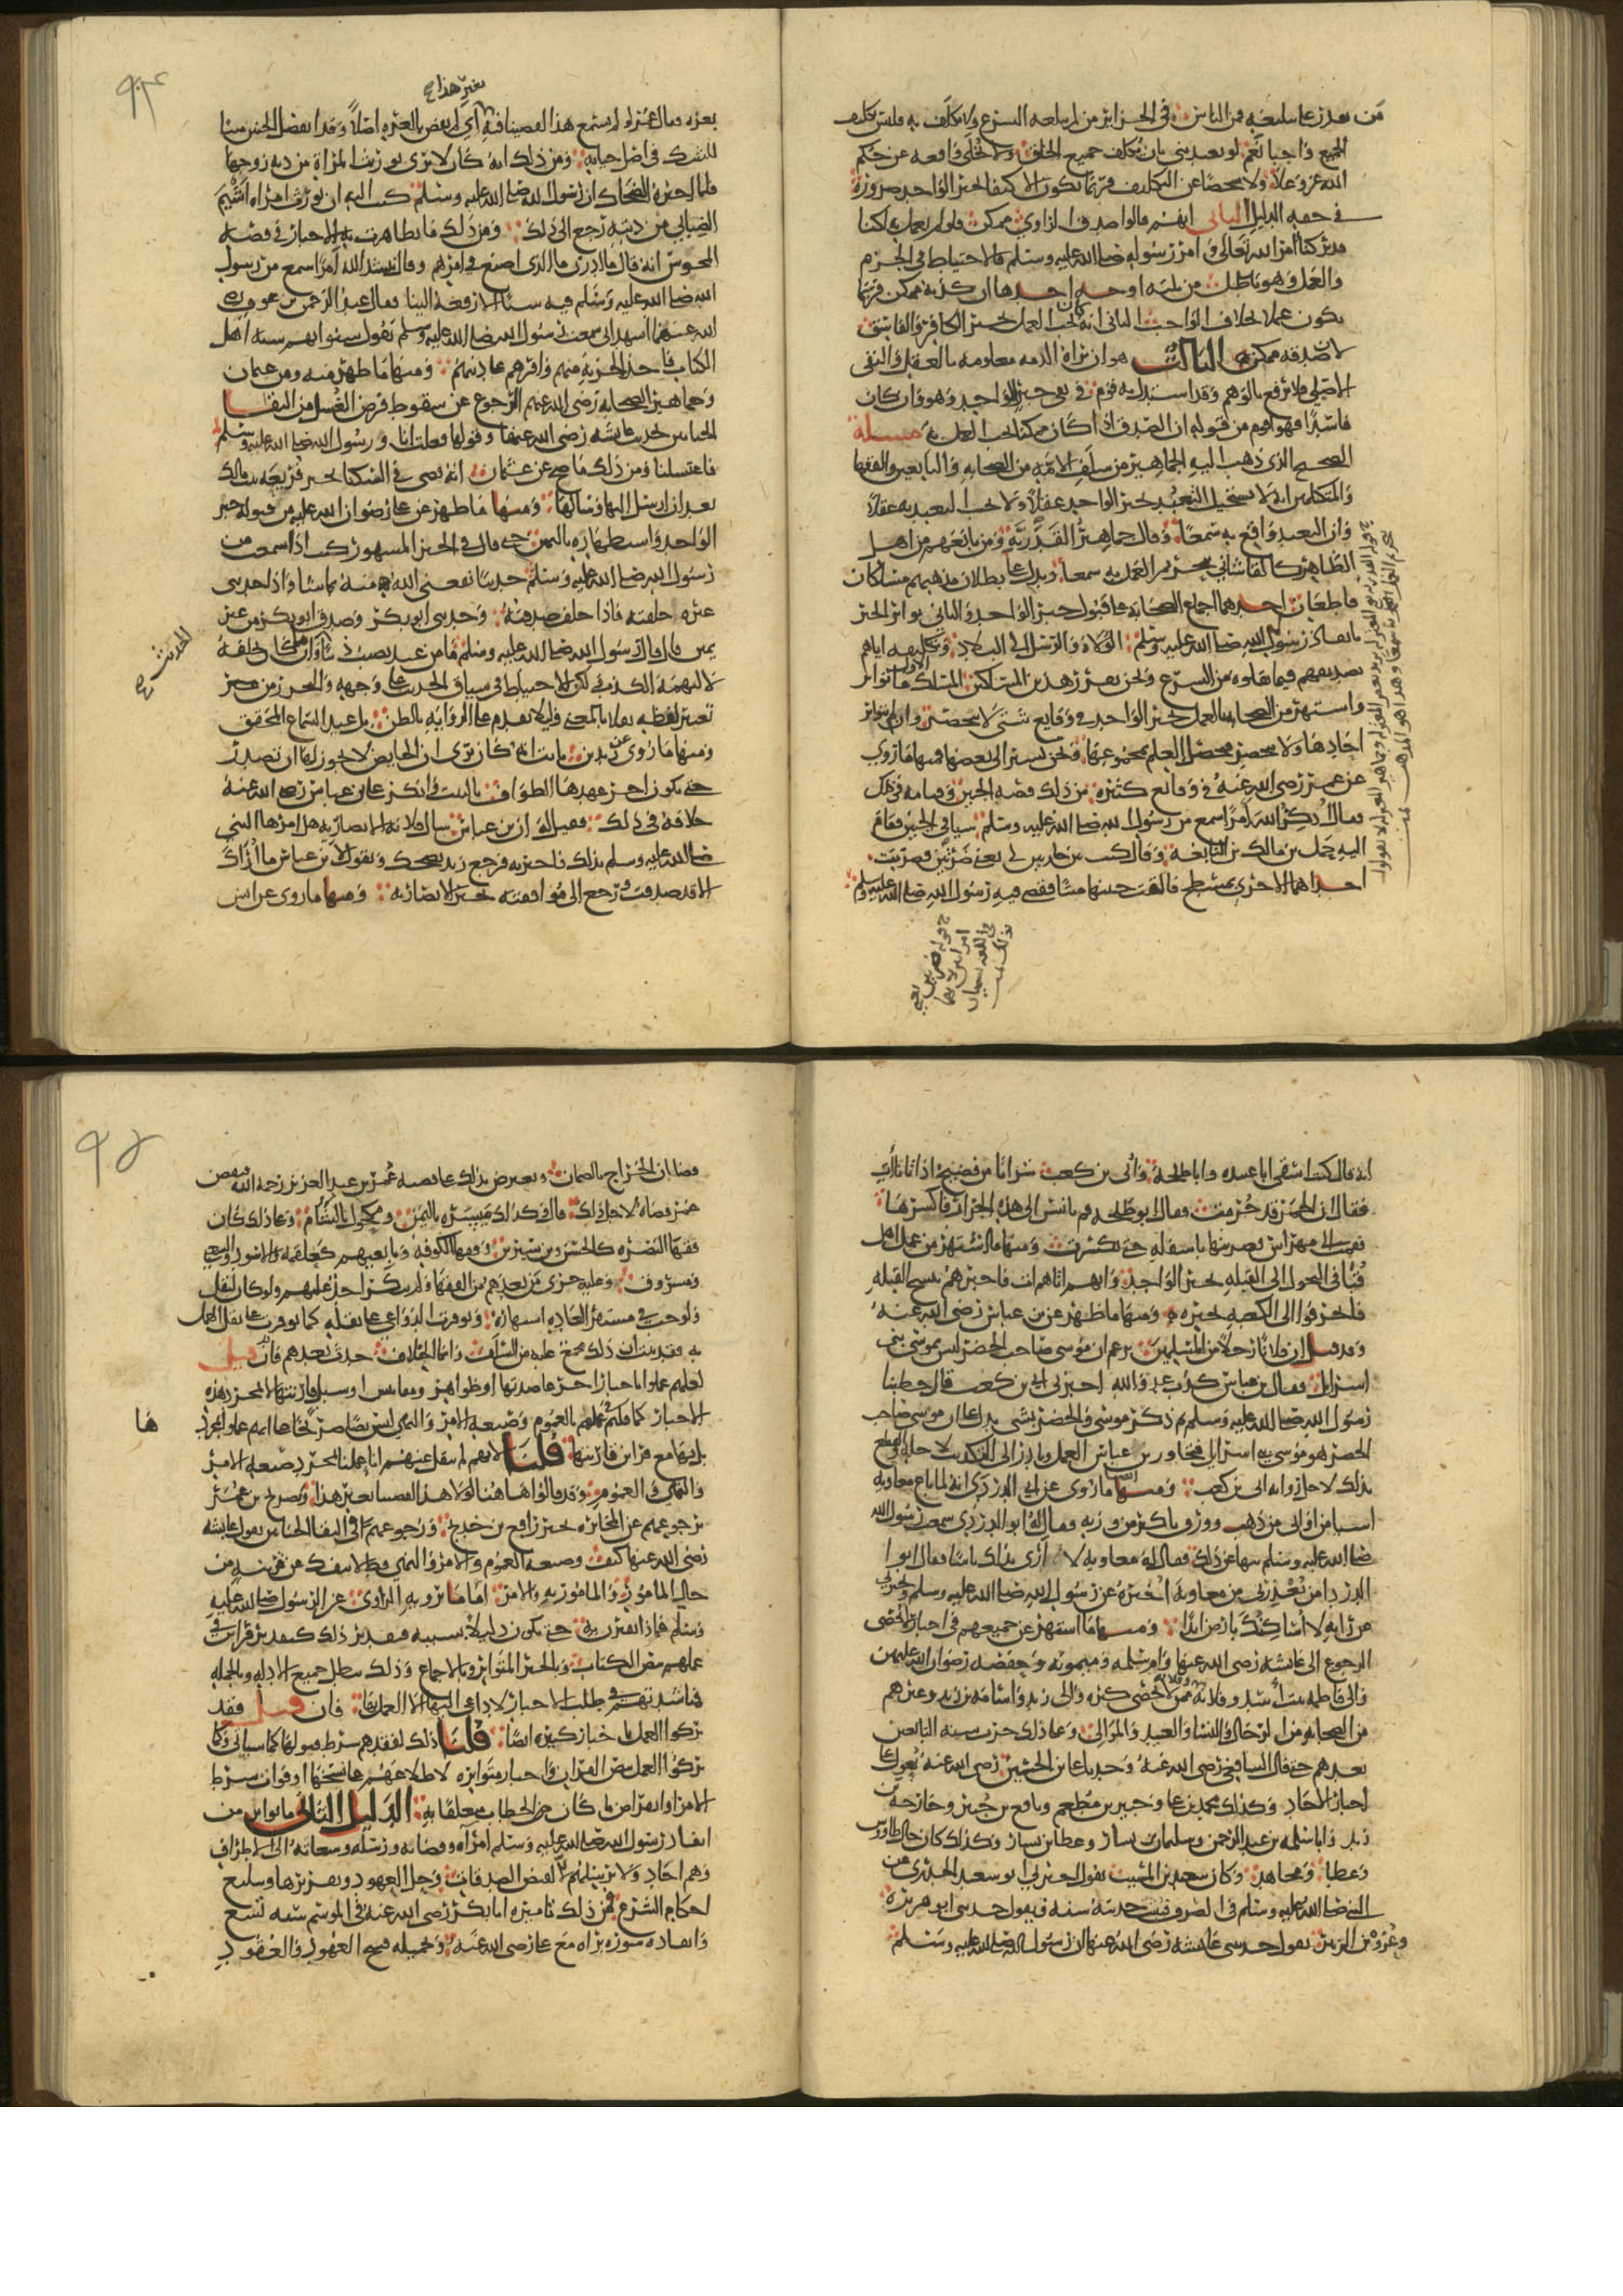 من يعذر عما سلبغيه فمن الناس في الجزائر من لم يبلغه الشرع ولا يكلف به فليس تكليف
الجميع واجبا نعم لو تعبد نبي بأن يكلف جميع الخلق ولا يخلي واقعة عن حكم
الله عز وعلا ولا شخصا عن التكليف فربما يكون الاكتفا بخبر الواحد ضرورة
في حقه الدليل الثاني انهم قالوا صدق الراوي ممكن فلو لم نعمل به لكنا
قد تركنا أمر الله تعالى و أمر رسوله صلى الله عليه وسلم فالاحتياط في الجزم
والعمل وهو باطل من ثلثه اوجه احدها ان كذبه ممكن فربما
يكون عملنا بخلاف الواجب الثاني انه كان يجب العمل بخبر الكافر والفاسق
لان صدقه ممكن الثالث هو ان براة الذمه معلومه بالعقل والنفي
الاصلي فلا ترفع بالوهم وقد استدل به قوم في نفي خبر الواحد وهو وان كان
فاسدا فهو اقوم من قوله ان الصدق اذا كان ممكنا يجب العمل به مسئلة
الصحيح الذي ذهب اليه الجماهير من سلف الامة من الصحابه والتابعين والفقها
والمتكلمين انه لا يستحيل التعبد بخبر الواحد عقلا ولا يجب التعبد به عقلا
وان التعبد واقع به سمعا وقال جماهير القدرية ومن تابعهم من اهل
الظاهر كالقاشاني بتحريم العمل به سمعا ويدل على بطلان مذهبهم مسلكان
قاطعان احدهما اجماع الصحابه على قبول خبر الواحد والثاني تواتر الخبر
بانفاذ رسول الله صلى الله عليه وسلم الولاة والرسل الى البلاد وتكليفه اياهم
تصديقهم فيما نقلوه من الشرع ونحن نقرر هذين المسلكين المسلك الاول ما تواتر
واشتهر من الصحابه بالعمل بخبر الواحد في وقايع شتى لا تنحصر وان لم تتواتر
احادها ولا يحصر فيحصل العلم بمجموعها ونحن نشير الى بعضها فمنها ما روي
عن عمر رضي الله عنه في وقائع كثيرة من ذلك قصة الجنين وقيامه في ذلك
وقال اذكر الله امرا سمع من رسول الله صلى الله عليه وسلم شيا في الجنين فقام
اليه حمل بن مالك بن النابغة وقال كنت بين جاريتين لي يعني ضرتين فضربت
احداهما الاخرى بمسطح فالقت جنينها ميتا فقضى فيه رسول الله صلى الله عليه وسلم
بغير هذا
بغرة فقال عمر لو لم نسمع هذا لقضينا فيه اي لم يقض بالغرة اصلا وقد انفصل الجنين ميتا
للشك في اصل حياته ومن ذلك انه كان لا يرى توريث المراة من دية زوجها
فلما اخبره الضحاك ان رسول الله صلى الله عليه وسلم كتب اليه ان يورث امراة اشيم
الضبابي من ديته رجع الى ذلك ومن ذلك ما تظاهرت به الاخبار في قصة
المجوس انه قال ما ادري ما الذي اصنع في امرهم وقال انشد الله امرا سمع من رسول
الله صلى الله عليه وسلم فيه شيا الا رفعه الينا فقال عبد الرحمن بن عوف رضي
الله عنهما اشهد اني سمعت رسول الله صلى الله عليه وسلم يقول سنوا بهم سنة اهل
الكتاب فاخذ الجزية منهم واقرهم على دينهم ومنها ما ظهر منه ومن عثمان
وجماهير الصحابه رضي الله عنهم الرجوع عن سقوط فرض الغسل من التقا
الختانين بحديث عايشه رضي الله عنها وقولها فعلت انا ورسول الله صلى الله عليه وسلم
فاغتسلنا ومن ذلك ما صح عن عثمان انه قضى في السكنا بخبر فريعة بنت مالك
بعد ان ارسل اليها وسالها ومنها ما ظهر عن علي رضوان الله عليه من قبوله خبر
الواحد واستظهاره باليمن حتى قال في الخبر المشهور كنت اذا سمعت من
رسول الله صلى الله عليه وسلم حديثا نفعني الله منه بما شا واذا حدثني
غيره حلفته فاذا حلف صدقته وحدثني ابو بكر وصدق ابو بكر من غير
يمين قال قال رسول الله صلى الله عليه وسلم ما من عبد يصيب ذنبا وان ما كان يحلفه
لا لتهمة الكذب لكن للاحتياط في سياق الحديث على وجهه والتحرز من
تغيير لفظه نقلا بالمعنى وليلا يقدم على الرواية بالظن بل عند السماع المحقق
ومنها ما روي عن زيد بن ثابت انه كان يرى ان الحايض لا يجوز لها ان تصدر
حتى يكون اخر عهدها الطواف بالبيت وانكر على ابن عباس رضي الله عنه
خلافه في ذلك فقيل له ان ابن عباس سال فلانة الانصاريه هل امرها النبي
صلى الله عليه وسلم بذلك فاخبرته فرجع زيد يضحك ويقول لابن عباس ما اراك
الا قد صدقت ورجع الى موافقته بخبر الانصاريه ومنها ما روي عن انس
الحديث
انه قال كنت اسقي ابا عبيده وابا طلحة وابي بن كعب شرابا من فضيخ اذ اتانا آت
فقال ان الخمر قد حرمت فقال ابو طلحه قم يا انس الى هذه الجرار فاكسرها
فقمت الى مهراس فضربتها باسفله حتى تكسرت ومنها ما اشتهر من عمل اهل
قبا في التحول الى القبله بخبر الواحد وانهم اتاهم ات فاخبرهم بنسخ القبله
فانحرفوا الى الكعبه بخبره ومنها ما ظهر عن بن عباس رضي الله عنه
وقد قيل ان فلانا رجلا من المسلمين يزعم ان موسى صاحب الخضر ليس بموسى بني
اسرائل فقال بن عباس كذب عدو الله اخبرني ابي بن كعب قال خطبنا
رسول الله صلى الله عليه وسلم ثم ذكر موسى والخضر بشي يدل على ان موسى صاحب
الخضر هو موسى بني اسرائيل فتجاوز بن عباس العمل وبادر الى التكذيب لاجله والقطع
بذلك لاجل روايه ابي بن كعب ومنها ايضا ما روي عن ابي الدرداء انه لما باع معاويه
شيئا من اواني من ذهب وورق باكثر من وزنه فقال له ابو الدردا سمعت رسول الله
صلى الله عليه وسلم ينهى عن ذلك فقال له معاويه لا ارى بذلك باسا فقال ابو ا
الدردا من يعذرني من معاوية اخبره عن رسول الله صلى الله عليه وسلم ويخبرني
عن رايه لا اساكنك بارض ابدا ومنها ما اشتهر عن جميعهم في اخبار لا تحصى
الرجوع الى عائشه رضي الله عنها وام سلمه وميمونه وحفصه رضوان الله عليهن
والى فاطمه بنت اسد وفلانه وفلانه ممن لا تحصى كثرة والى زيد واسامة بن زيد وغيرهم
من الصحابه من الرجال والنسا والعبيد والموالي وعلى ذلك جرت سنه التابعين
بعدهم حتى قال الشافعي رضي الله عنه وجدنا علي بن الحسين رضي الله عنه يعول على
اخبار الاحاد وكذلك محمد بن علي وجبير بن مطعم ونافع بن جبير وخارجه بن
زيد وابا سلمه بن عبد الرحمن وسليمان بن يسار وعطا بن يسار وكذلك كان حال طاووس
وعطا ومجاهد وكان سعيد بن المسيب يقول اخبرني ابو سعيد الخدري عن
النبي صلى الله عليه وسلم في الصرف فيثبت حديثه سنه ويقول حدثني ابو هريرة
وعروة بن الزبير يقول حدثتني عائشه رضي الله عنها ان رسول الله صلى الله عليه وسلم
قضا ان الخراج بالضمان ويعترض بذلك على قصه عمر بن عبد العزيز رحمه الله فينقض
عمر قضاه لاجل ذلك قال وكذلك ميسره باليمن ومكحول بالشام وعلى ذلك كان
فقها البصره كالحسن وبن سيرين وفقها الكوفه وتابعيهم كعلقمه والاسود والشعبي
ومسروق وعليه جرى من بعدهم من الفقها ولم ينكر احد عليهم ولو كان لنقل
ولوجب في مستقر العاده اشتهاره وتوفرت الدواعي على نقله كما توفرت على نقل العمل
به فقد ثبت ان ذلك مجمع عليه من السلف وانما الخلاف حدث بعدهم فان قيل
لعلهم عملوا بها مع قرائن واخبار اخر عاضدتها او ظواهر ومقاييس او سبب قارنتها لا بمجرد هذه
الاخبار كما قلتم عملهم بالعموم وصيغه الامر والنهي ليس نصا صريحا على انهم عملوا بمجرد
ها
بل بها مع قراين قارنتها قلنا لانهم لم ينقل عنهم انا عملنا بمجرد صيغه الامر
والنهي والعموم وقد قالوا هاهنا لولا هذا لقضينا بغير هذا وصرح بن عمر
برجوعهم عن المخابره بخبر رافع بن خديج ورجوعهم في التقا الختانين بقول عايشه
رضي الله عنها كيف وصيغه العموم والامر والنهي قط لا تنفك عن قرينه من
حال المامور والمامور به والامر اما ما يرويه الراوي عن الرسول صلى الله عليه
وسلم فماذا يقترن به حتى يكون دليلا بسببه فتقدير ذلك كتقدير قراين في
عملهم بنص الكتاب وبالخبر المتواتر وبالاجماع وذلك يبطل جميع الادله وبالجمله
فمناشدتهم في طلب الاخبار لا داعي اليها الا العمل بها فان قيل فقد
تركوا العمل باخبار كثيره ايضا قلنا ذلك لفقدهم شرط قبولها كما سياتي وكما
تركوا العمل بنص القران واخبار متواتره لاطلاعهم على نسخها او فوات شرط
الامر او انقراض من كان الخطاب متعلقا به الدليل الثاني ما تواتر من
انفاذ رسول الله صلى الله عليه وسلم امراه وقضاته ورسله وسعاته الى الاطراف
وهم احاد ولا يرسلهم الا لقبض الصدقات وحل العهود وتقريرها وتبليغ
احكام الشرع فمن ذلك تاميره ابا بكر رضي الله عنه في الموسم سنه تسع
وانفاده سورة براه مع علي رضي الله عنه وتحميله فسخ العهود والعقود